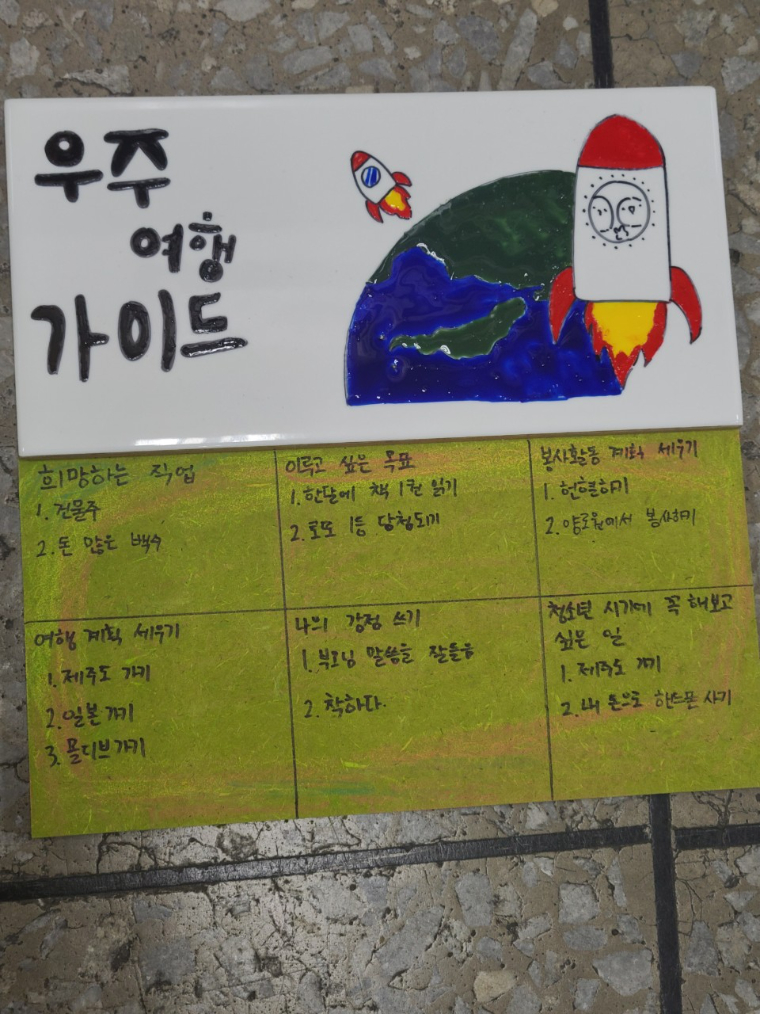 우주
여행
가이드
희망하는 직업
1. 건물주
2. 돈 많은 백수
이루고 싶은 목표
1. 한달에 책 1권 읽기
2. 로또 1등 당첨되기
봉사활동 계획 세우기
1. 헌혈하기
2. 양로원에서 봉사하기
여행 계획 세우기
1. 제주도 가기
2. 일본 가기
3. 몰디브 가기
나의 강점 쓰기
1. 부모님 말씀을 잘들음
2. 착하다.
청소년 시기에 꼭 해보고
싶은 일
1. 제주도 가기
2. 내 돈으로 핸드폰 사기